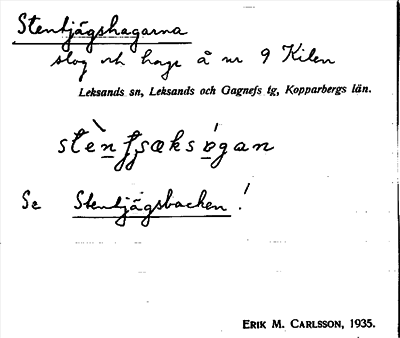 Stentjägshagarna
slog och hage å nr 9 Kilen
Leksands sn, Leksands och Gagnefs tg, Kopparbergs län.
Se Stentjägsbacken!
ERIK M. CARLSSON, 1935.